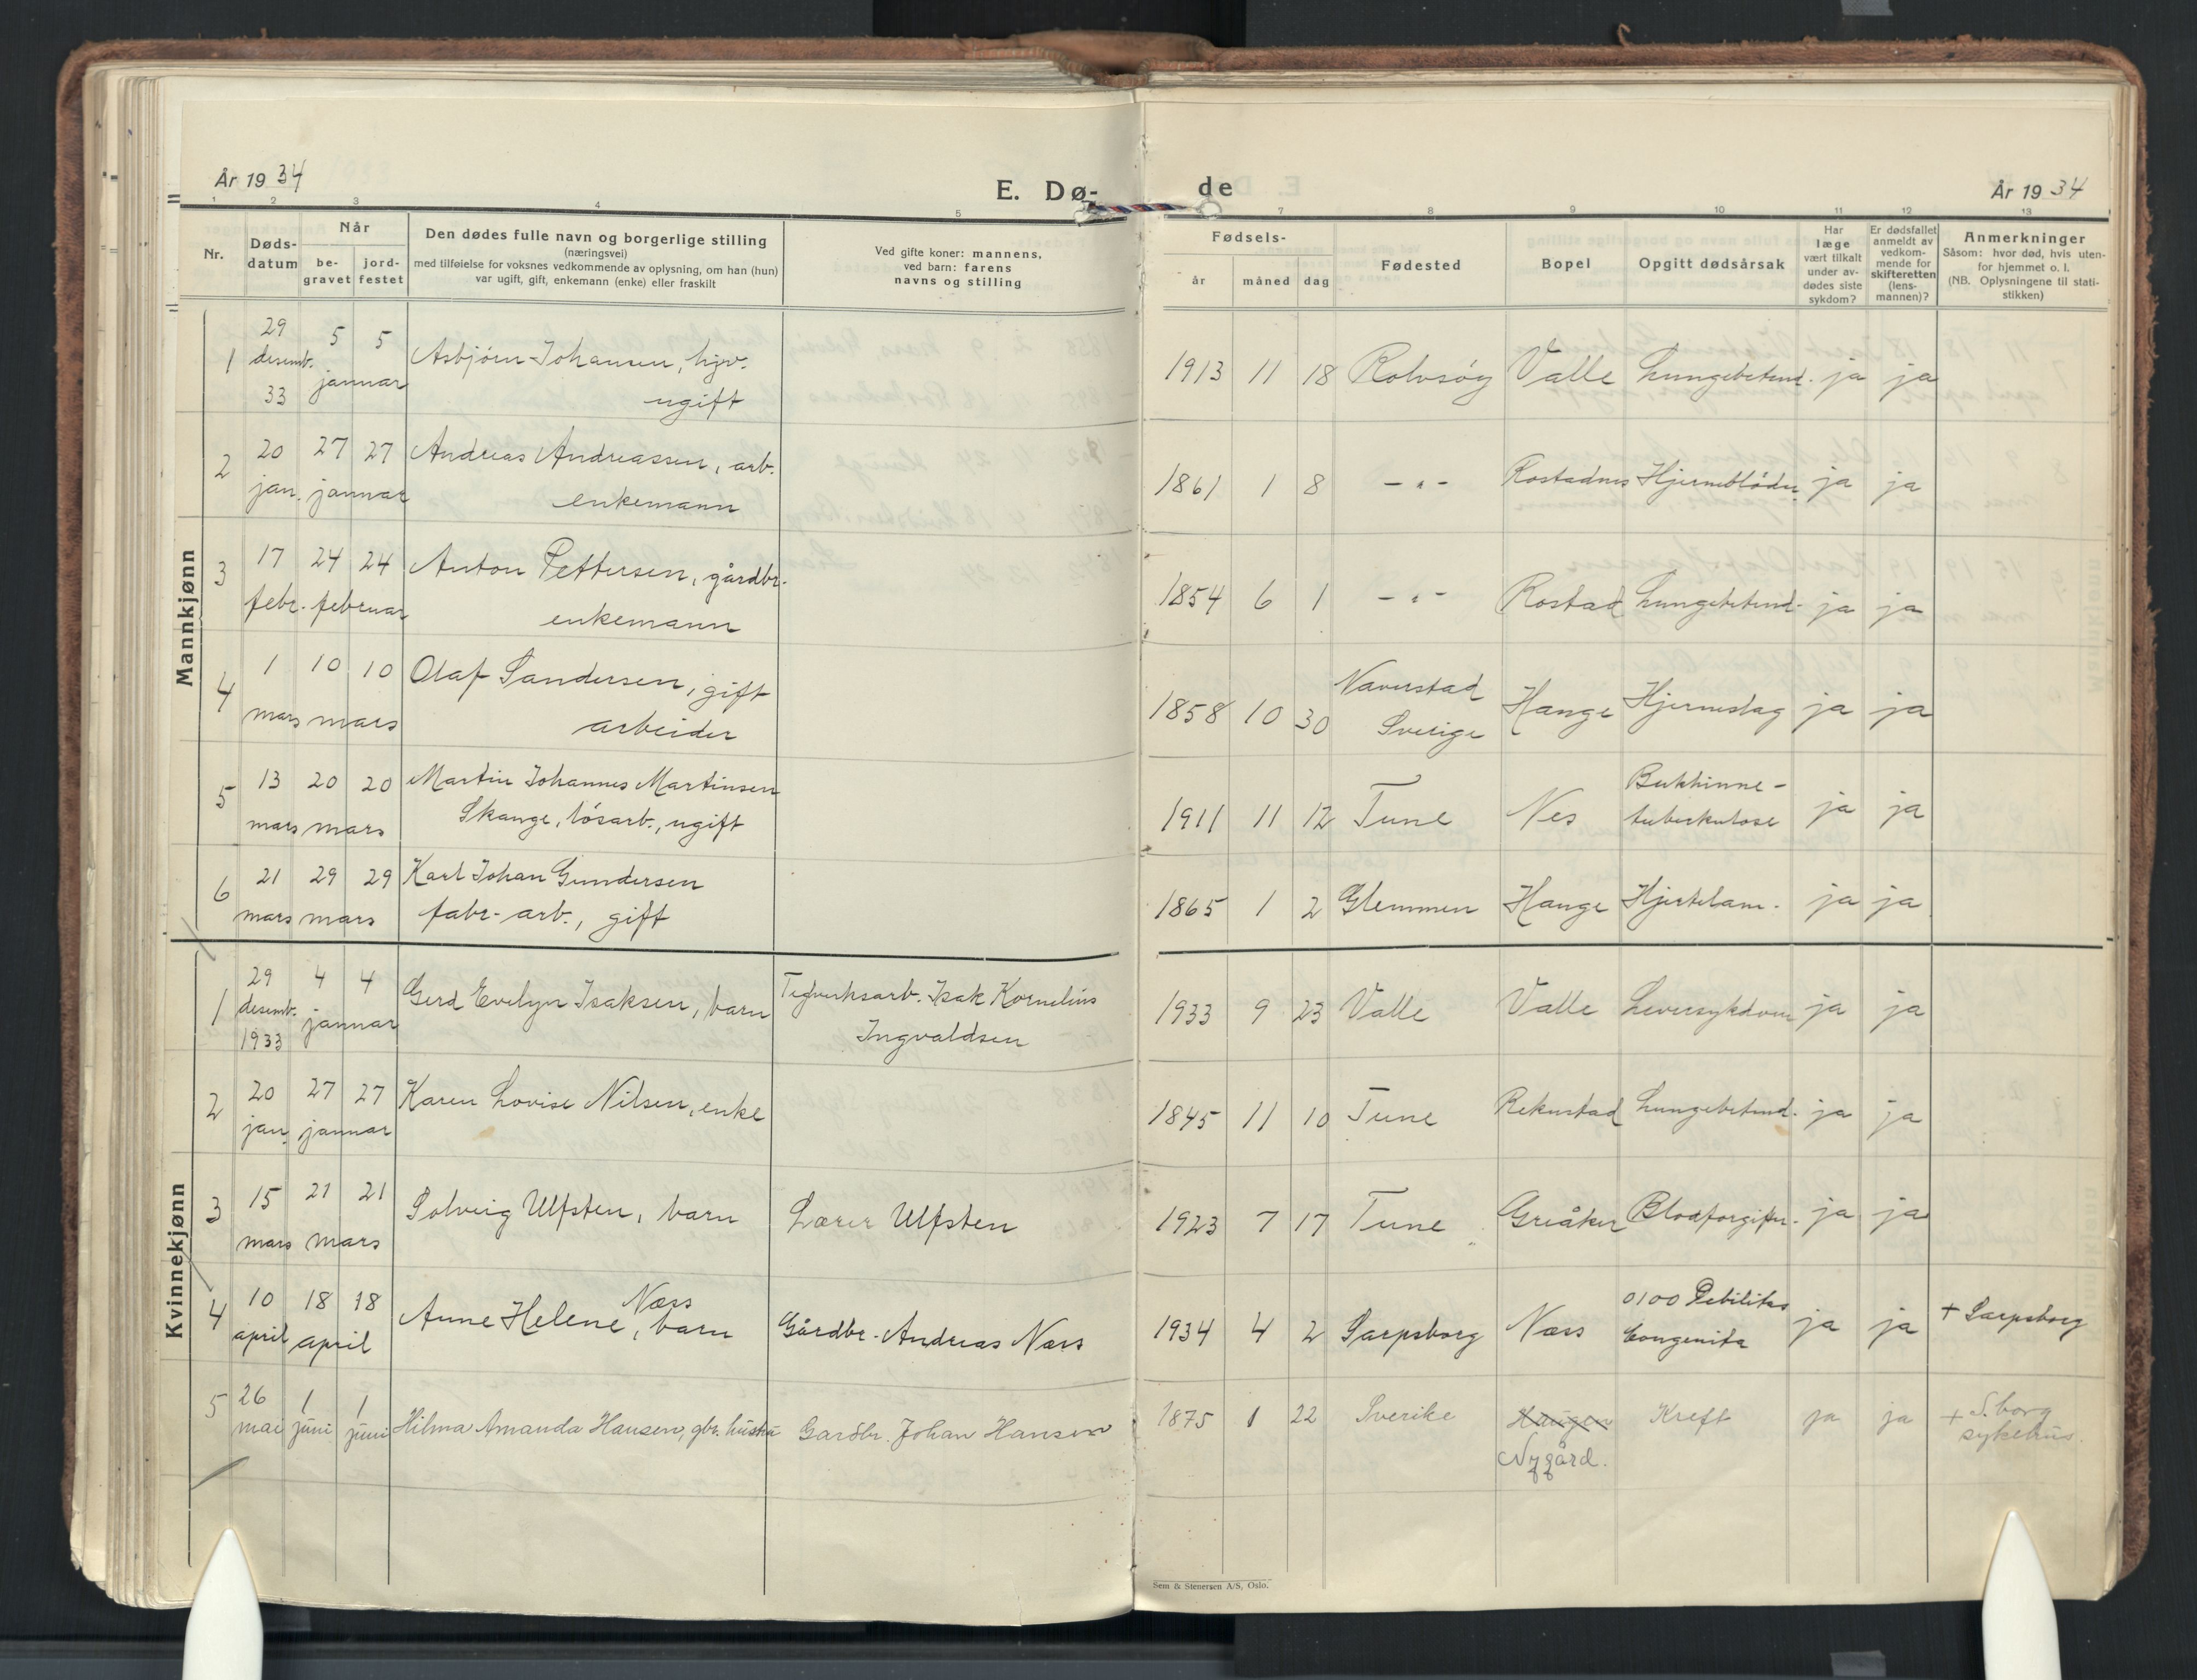 År 1934
E. Dø-
de
År 1934
1 2 3 4 5 7 8 9 10 11 12 13
Nr.
Døds-
datum
Når
be-
gravet
jord-
festet
Den dødes fulle navn og borgerlige stilling
(næringsvei)
med tilføielse for voksnes vedkommende av oplysning, om han (hun)
var ugift, gift, enkemann (enke) eller fraskilt
Ved gifte koner: mannens,
ved barn: farens
navns og stilling
Fødsels-
år måned dag
Fødested
Bopel
Opgitt dødsårsak
Har
læge
vært tilkalt
under av-
dødes siste
sykdom?
Er dødsfallet
anmeldt av
vedkom-
mende for
skifteretten
(lens-
mannen)?
Anmerkninger
Såsom: hvor død, hvis uten-
for hjemmet o. l.
(NB. Oplysningene til stati-
stikken)
Mannkjønn
1 29 desemb. 33 5 5 januar Asbjörn Johansen, hjv.
ugift
1913 11 18 Rolvsöy Valle Lungebetend. ja ja
2 20 jan. 27 27 januar Andreas Andreassen, arb.
enkemann
1861 1 8 -"- Rostadnes Hjerneblödn. ja ja
3 17 febr. 24 24 februar Anton Pettersen, gårdbr.
enkemann
1854 6 1 -"- Rostad Lungebetend. ja ja
4 1 mars 10 10 mars Olaf Sandersen, gift
arbeider
1858 10 30 Naverstad
Sverige Hauge Hjerneslag ja ja
5 13 mars 20 20 mars Martin Johannes Martinsen
Skauge, lösarb., ugift
1911 11 12 Tune Nes Bukhinne-
tuberkulose ja ja
6 21 mars 29 29 mars Karl Johan Gundersen
fabr.-arb., gift
1865 1 2 Glemmen Hauge Hjertelam. ja ja
Kvinnekjønn
1 29 desemb. 1933 4 4 januar Gerd Evelyn Isaksen, barn Teglverksarb. Isak Kornelius
Ingvaldsen
1933 9 23 Valle Valle Leversykdom ja ja
2 20 jan. 27 27 januar Karen Lovise Nilsen, enke
1845 11 10 Tune Rekustad Lungebetend. ja ja
3 15 mars 21 21 mars Solveig Ulfsten, barn Lærer Ulfsten
1923 7 17 Tune Greåker Blodforgiftn. ja ja
4 10 april 18 18 april Anne Helene Næss, barn Gårdbr. Andreas Næss
1934 4 2 Sarpsborg Næss 0100 Debilitas
Congenita ja ja + Sarpsborg
5 26 mai 1 juni 1 juni Hilma Amanda Hansen, gbr. hustru Gardbr. Johan Hansen
1875 1 22 Sverike Haugen
Nygård. Kreft ja ja + S.borg
sykehus.
Sem & Stenersen A/S, Oslo.